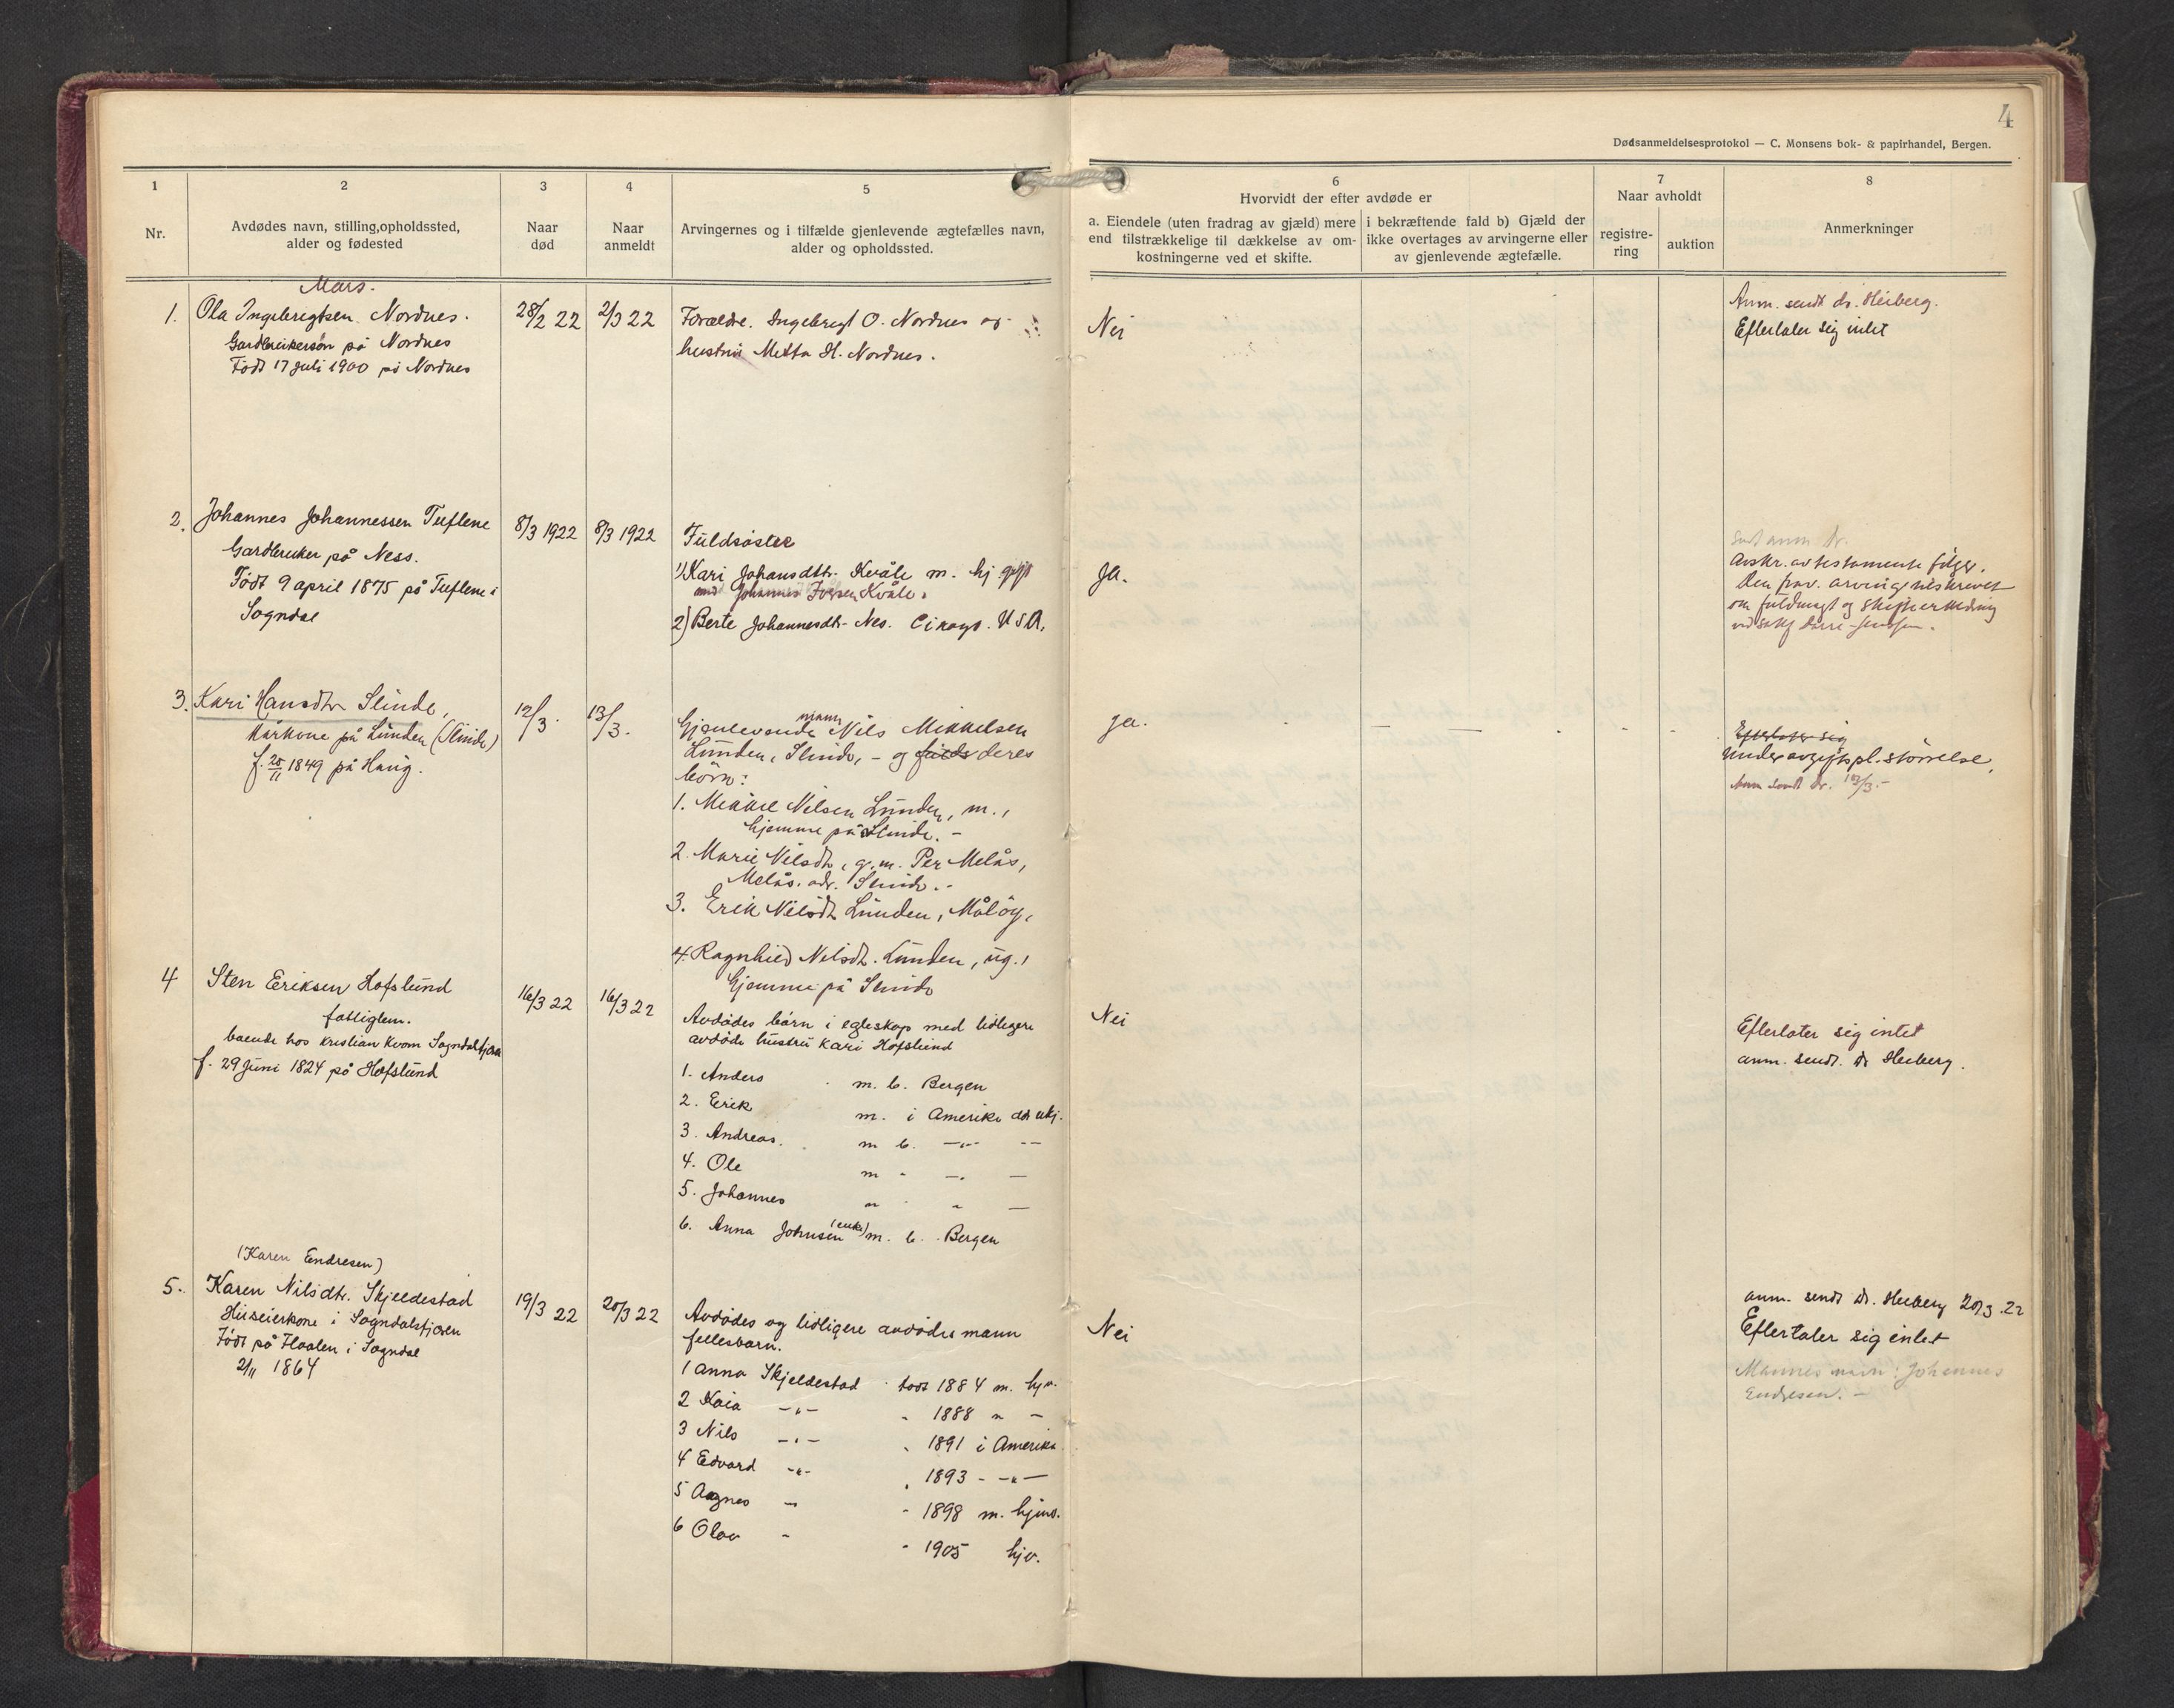 4
Dødsanmeldelsesprotokol — C. Monsens bok- & papirhandel, Bergen.
1
Nr.
2
Avdødes navn, stilling, opholdssted,
alder og fødested
3
Naar
død
4
Naar
anmeldt
5
Arvingernes og i tilfælde gjenlevende ægtefælles navn,
alder og opholdssted.
6
Hvorvidt der efter avdøde er
a. Eiendele (uten fradrag av gjæld) mere
end tilstrækkelige til dækkelse av om-
kostningerne ved et skifte.
i bekræftende fald b) Gjæld der
ikke overtages av arvingerne eller
av gjenlevende ægtefælle.
7
Naar avholdt
registre-
ring
auktion
8
Anmerkninger
Mars.
1.
Ola Ingebregtsen Nordnes.
Gardbrukersøn på Nordnes
Født 17 juli 1900 på Nordnes
28/2 22
2/3 22
Forældre. Ingebregt O. Nordnes og
hustru Metta H. Nordnes.
Nei
Anm. sendt dr. Heiberg.
Efterlater sig intet
2.
Johannes Johannessen Tuftene
Gardbruker på Ness.
Født 9 april 1875 på Tuftene i
Sogndal
8/3 1922
8/3 1922
Fuldsøster
1) Kari Johansdttr. Kvåle m. hj gift
med Johannes Iversen Kvåle.
2) Berte Johannesdtr. Nes. Cikago. U S A.
Ja.
Sendt anm dr.
Avskr. av testamente følger.
Den frav. arving tilskrevet
om fuldmagt og skifteerklæring
ved
3.
Kari Hansdtr Slinde,
kårkone på Lunden (Slinde)
f. 25/11 1849 på Haug.
12/3.
13/3.
Gjenlevende mann Nils Mikkelsen
Lunden, Slinde, - og fulds deres
børn:
1. Mikkel Nilsen Lunden, m.,
hjemme på Slinde. -
2. Marie Nilsdtr, g.m. Per Melås,
Melås. adr. Slinde. -
3. Erik Nilsdtr Lunden, Måløy,
4. Ragnhild Nilsdtr. Lunden, ug.,
hjemme på Slinde
ja.
Efterlater sig
Under avgiftspl. størrelse,
Anm sendt dr. 13/3. -
4
Sten Eriksen Hofslund
fattiglem.
boende hos Kristian Kvam Sogndalsfjøra
f. 29 juni 1824 på Hofslund
16/3 22
16/3 22
Avdødes børn i egteskap med tidligere
avdøde hustru Kari Hofslund
1. Anders m. b. Bergen
2. Erik m. i Amerika adr ukj.
3. Andreas. m b. —„— --
4. Ole m - —. —
5. Johannes „ „ —
6. Anna Johnsen (enke) m. b. Bergen
Nei
Efterlater sig intet
anm. sendt. dr Heiberg.
(Karen Endresen)
5.
Karen Nilsdtr. Skjeldestad
Huseierkone i Sogndalsfjøren
Født på Flaaten i Sogndal
2/11 1864
19/3 22
20/3 22
Avdødes og tidligere avdøde mann
fellesbarn.
1 Anna Skjeldestad født 1884 m. hjv.
2 Kaia -„- „ 1888 „ -
3 Nils -„- „ 1891 i Amerika
4 Edvard -„- „ 1893 - -„-
5 Aagnes „ „ 1898 m. hjms.
6 Olav „ „ 1905 hjv.
Nei
anm. sendt dr. Heiberg 20/3. 22
Efterlater sig intet
Mannes navn: Johannes
Endresen. -